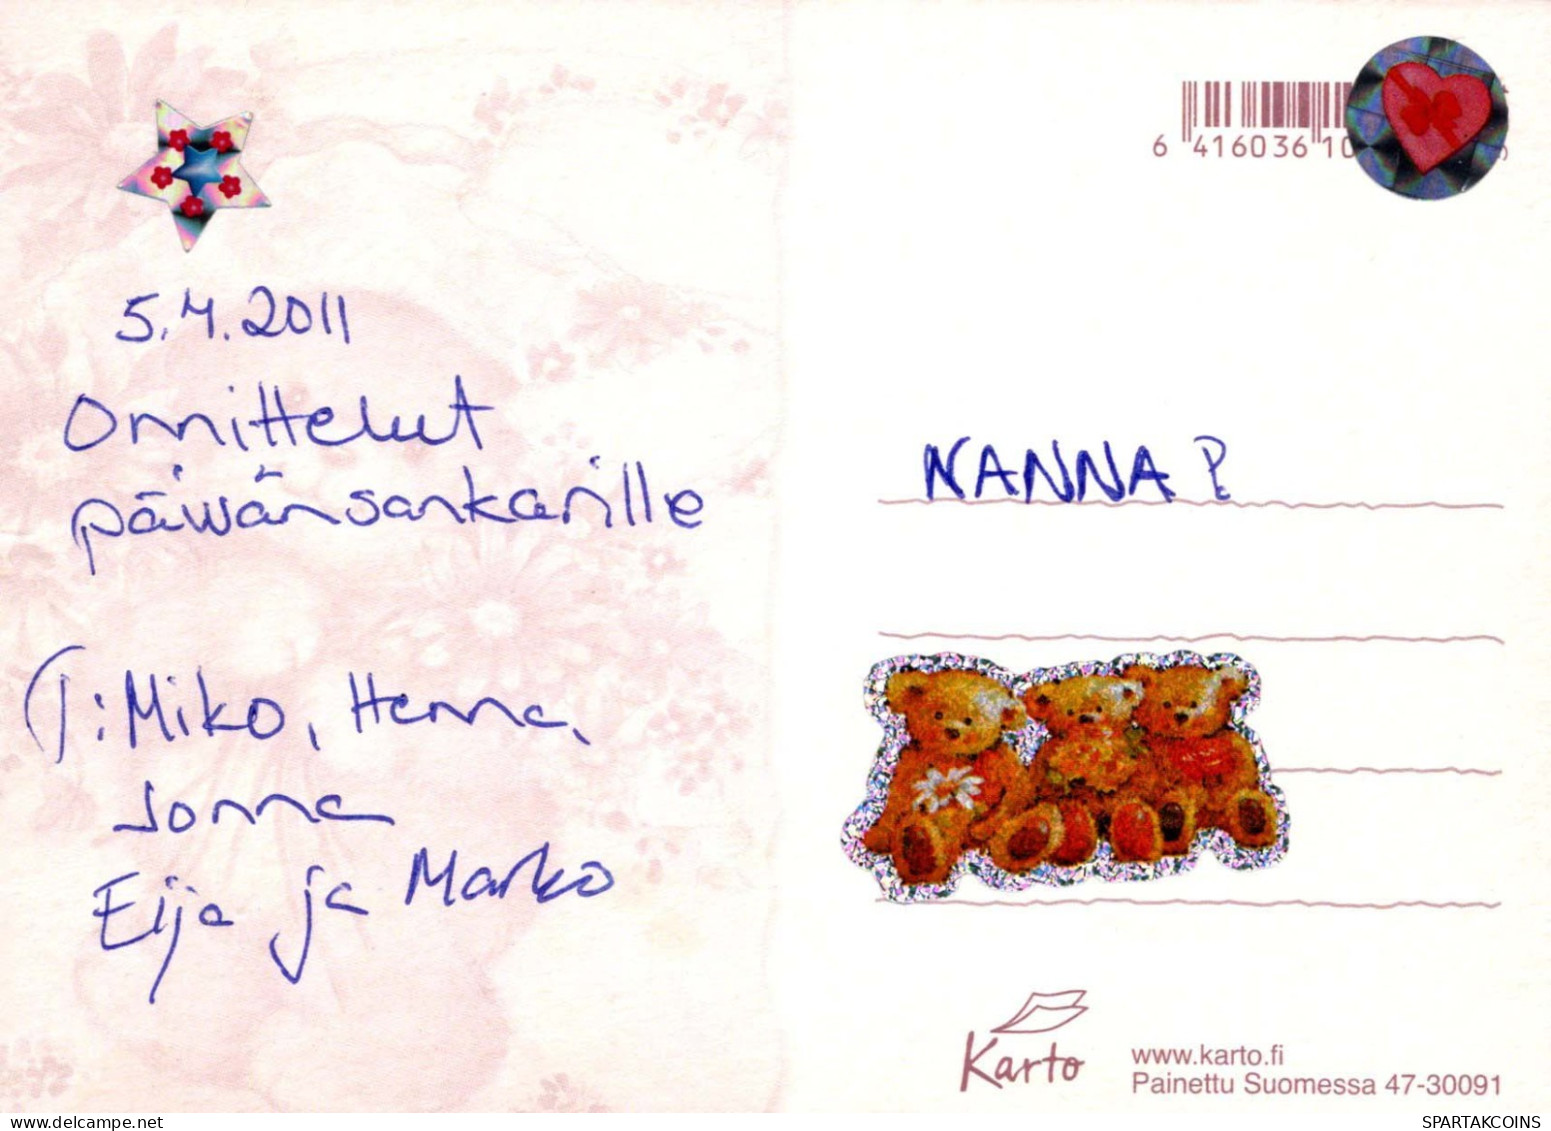 5.4.2011
Onnittelut
päivänsankarille
(T: Miko, Henna,
Jonna
Eija ja Marko
6 416036 10
NANNA P
Karto
www.karto.fi
Painettu Suomessa 47-30091
delcampe.net
SPARTAKCOINS